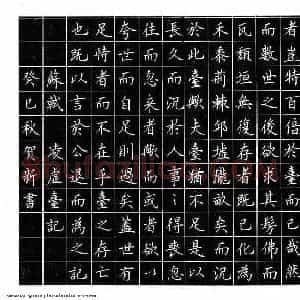 者豈特百倍於臺而已哉然
而數世之後欲求其髣髴而破
瓦頹垣無復存者既已化為
禾黍荊棘邱墟隴畝矣而況
於此臺歟夫臺猶不足恃以
長久而況於人事之得喪忽
往而忽來者歟而或者欲以
夸世而自足則過矣蓋世有
足恃者而不在乎臺之存亡
也既以言於公退而為之記
蘇軾 凌虛臺記
癸巳秋賀新書